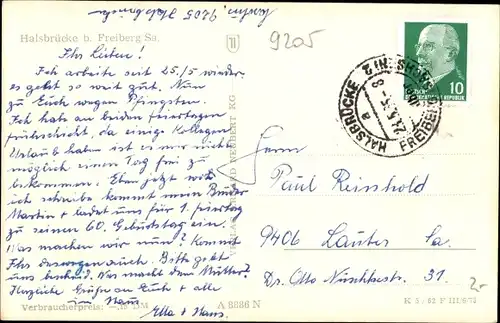 Halsbrücke b. Freiberg Sa.
9205
Ihr Lieben!
Ich arbeite seit 25./5 wieder,
es geht so weit gut. Nun
zu Euch wegen Pfingsten.
Ich habe an beiden feiertagen
frühschicht, da einige Kollegen
Urlaub haben ist es mir nicht
möglich einen Tag frei zu
bekommen. Eben jetzt wo
ich schreibe kommt mein Bruder
Martin + ladet uns für 1. feiertag
zu seinen 60. Geburtstag ein.
Was machen wir nun? Kommt
Ihr deswegen auch. Bitte gebt
uns bescheid. Was macht dem Mutter?
Herzliche Grüße an Euch + alle
im Haus
Ella + Hans.
Verbraucherpreis: —,15 DM
A 8886 N
HALSBRÜCKE
FREIBERG
a
10
Herrn
Paul Reinhold
9406 Lauter Sa.
Dr. Otto Nuschkestr. 31.
2.-